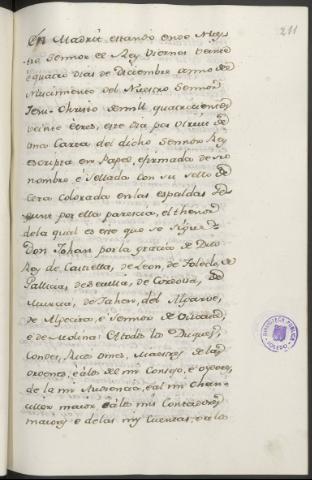 211
En Madrid estando ende Nues
tro Sennor el Rey Viernes veinte
é quatro dias de Diciembre anno del
Nascimiento del Nuestro Sennor
Jesu-Christo de mill quatrocientos
veinte é tres, este dia por virtud de
una Carta del dicho Sennor Rey
escripta en Papel, é firmada de su
nombre é Sellada con su sello de
Cera Colorada en las espaldas se
gunt por ella parescia, el thenor
de la qual es este que se sigue =
Don Johan por la gracia de Dios
Rey de Castiella, de Leon, de Toledo, de
Gallicia, de Sevilla, de Cordova, de
Murcia, de Jahen, del Algarve,
de Algecira, é Sennor de Vizcaya,
é de Molina: A todos los Duques,
Condes, Ricos omes, Maestres de las
Ordenes, é á los del mi Consejo, é oydores
de la mi Audiencia, é al mi Chan-
ciller maior é á los mis Contadores
maiores é de las mis Cuentas, é á los
BIBLIOTECA PUBLICA
TOLEDO